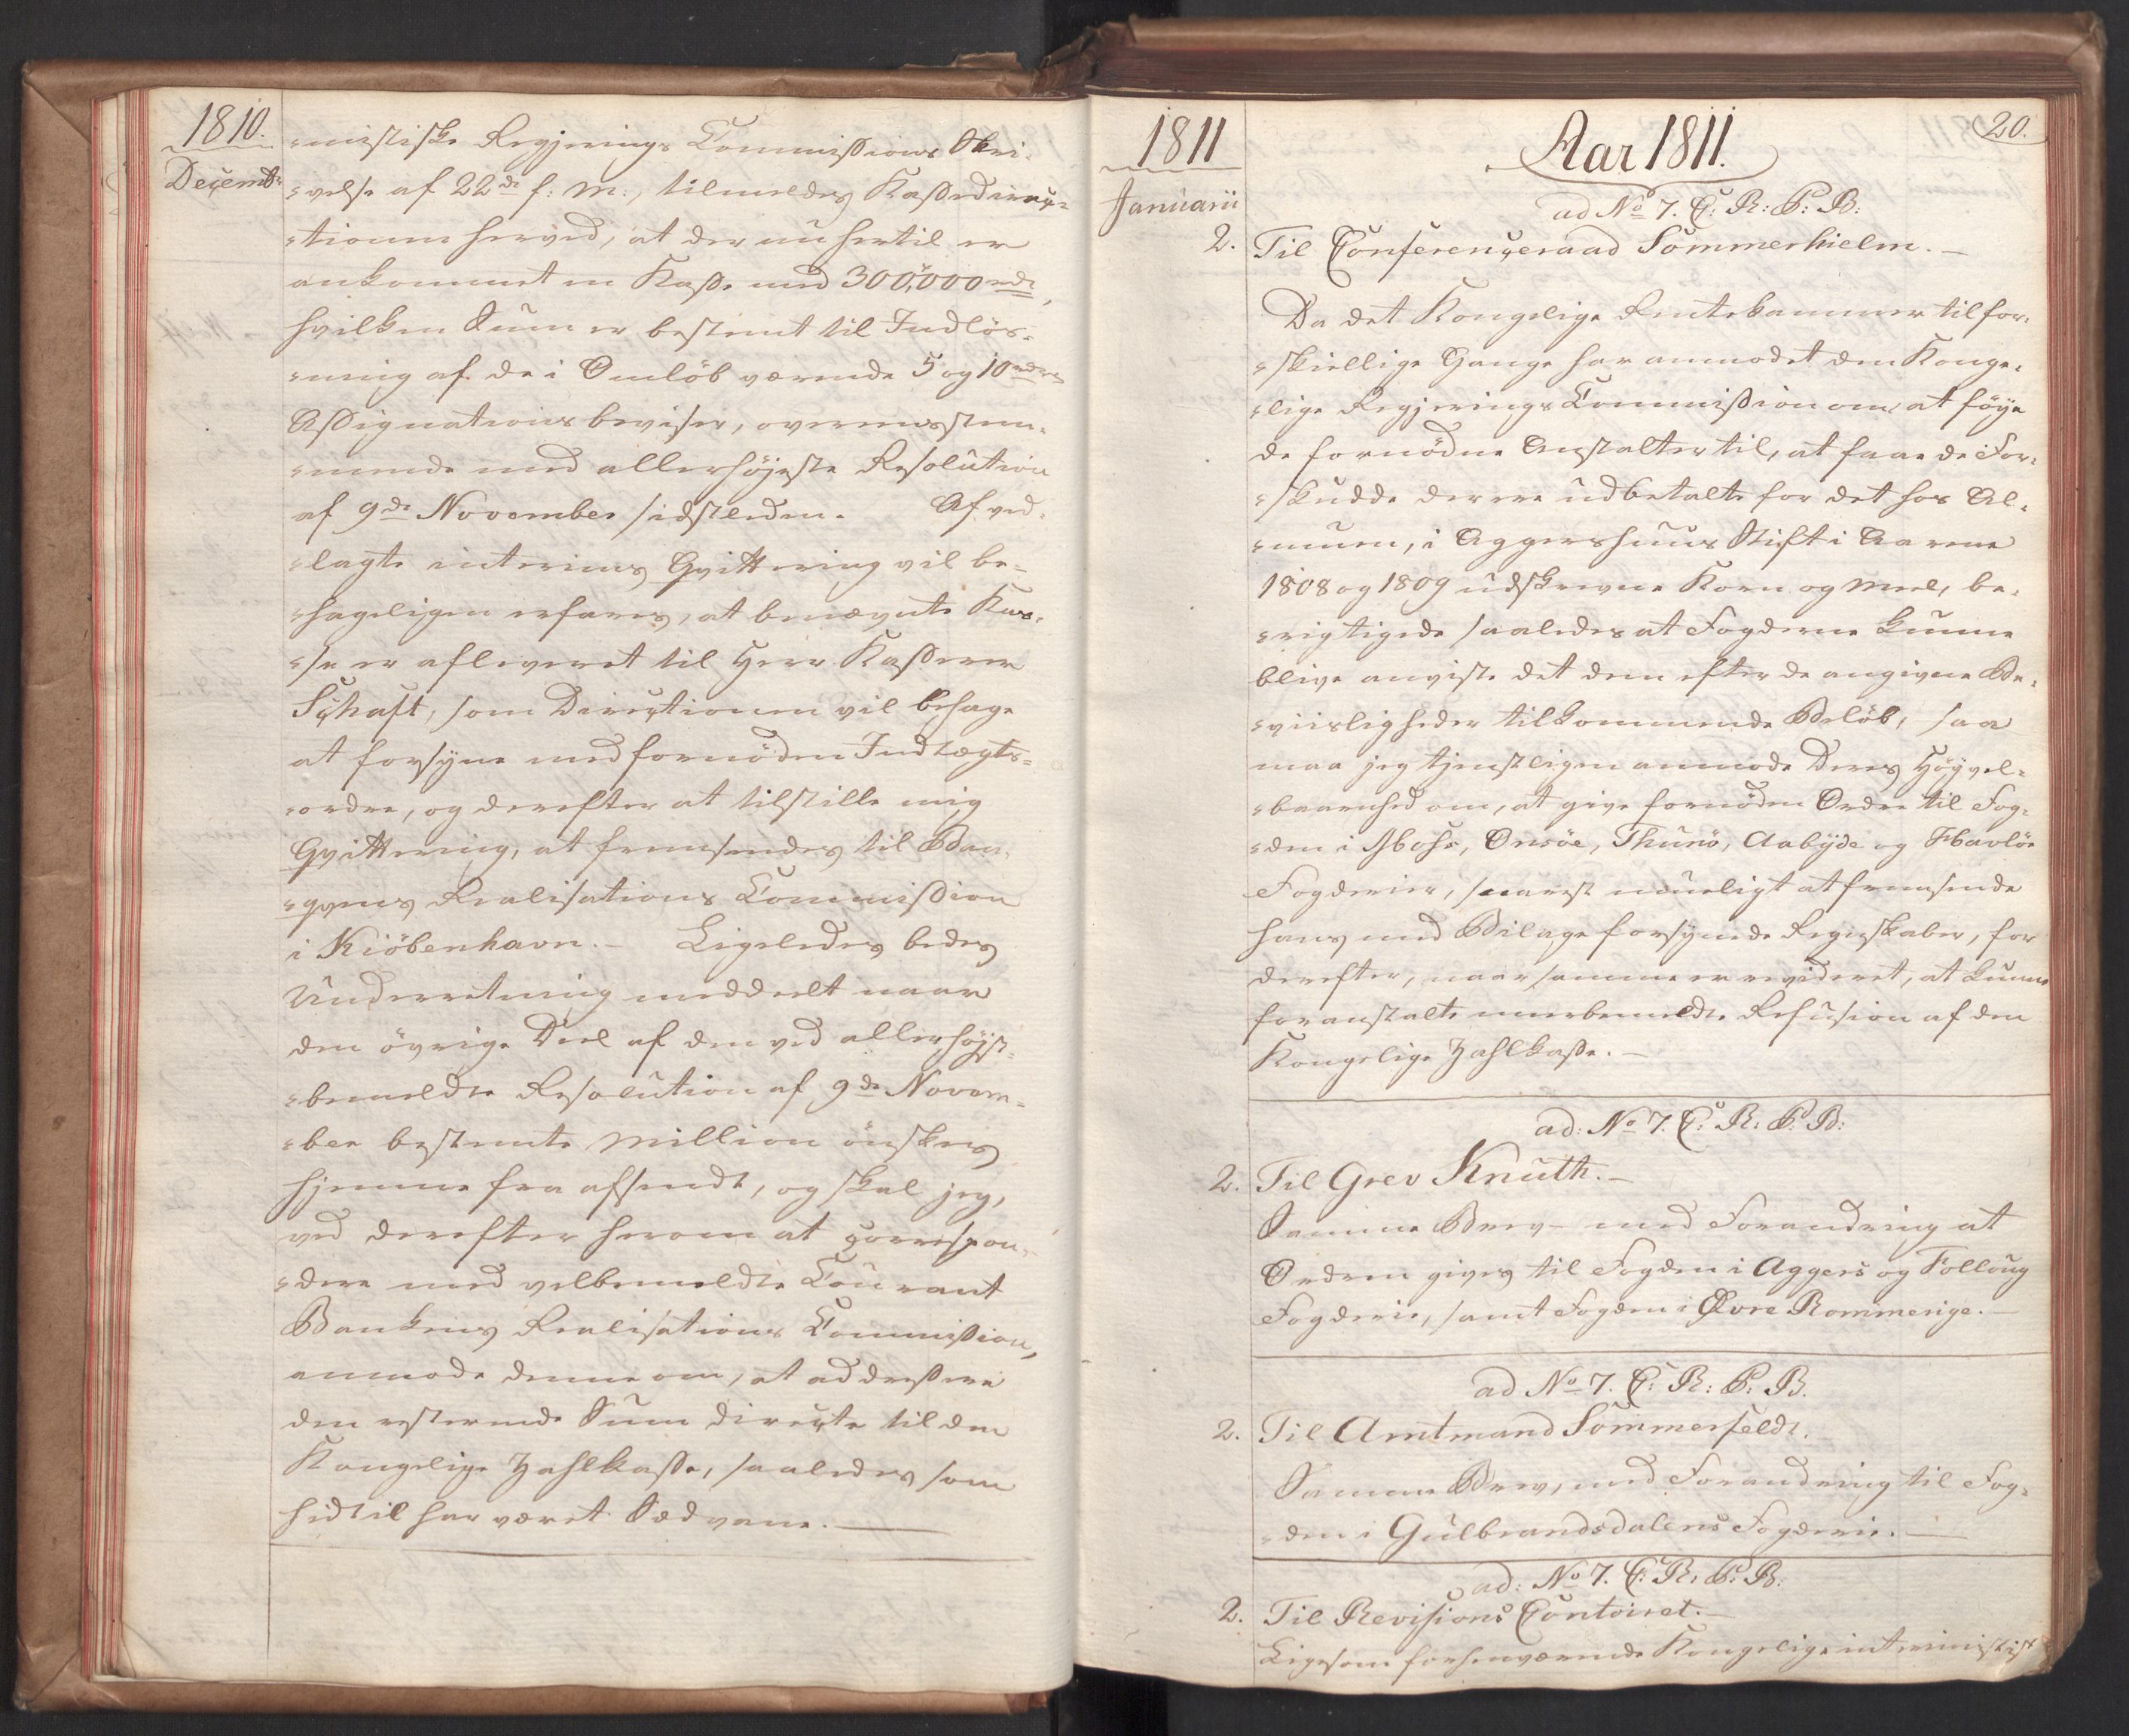 1810.
Decembr
-mistiske Regjerings Commissions Skri-
-velse af 22de f: M:, tilmeldes Kassedirec-
-tionen herved, at der nu hertil er
ankommet en Kasse med 300,000 rdr,
hvilken Sum er bestemt til Indlös-
-ning af de i Omlöb værende 5 og 10 rdrs
Assignationsbeviser, overeensstem-
-mende med allerhöjeste Resolution
af 9de November sidstleden. Af ved-
-lagte interims Qvittering vil be-
-hageligen erfares, at benævnte Kas-
-se er afleveret til Herr Kasserer
Schaft, som Directionen vil behage
at forsyne med fornöden Indtægts-
-ordre, og derefter at tilstille mig
Qvittering, at fremsendes til Ban-
-qvens Realisations Commission
i Kiöbenhavn. - Ligeledes bedes
Underretning meddeelt naar
den övrige Deel af den ved allerhöjst-
-bemeldte Resolution af 9de Novem-
-ber bestemte Million önskes
hjemme fra afsendt, og skal jeg,
ved derefter herom at correspon-
-dere med velbemeldte Courant
Bankens Realisations Commission,
anmode denne om, at addressere
den resterende Sum directe til den
Kongelige Zahlkasse, saaledes som
hidtil har været Sædvane.
1811
Januarii
20.
Aar 1811.
ad No 7. C: R: P: B:
2. Til Conferenceraad Sommerhielm. -
Da det Kongelige Rentekammer til for-
-skiellige Gange har anmodet den Konge-
-lige Regjerings Commission om at föye
de fornödne Anstalter til, at faae de For-
-skudde der ere udbetalte for det hos Al-
-muen, i Aggershuus Stift i Aarene
1808 og 1809 udskrevne Korn og Meel, be-
-rigtigede saaledes at Fogderne kunne
blive anviste det dem efter de angivne Be-
-viisligheder tilkommende Belöb, saa
maa jeg tjenstligen anmode Deres Höyvel-
-baarenhed om, at give fornöden Ordre til Fog-
-den i Moss, Onsöe, Thunö, Aabyde og Havlöe
Fogderier, snarest mueligt at fremsende
hans med Bilage forsynede Regnskaber, for
derefter, naar samme er revideret, at kunne
foranstalte meerbemeldte Refusion af den
Kongelige Zahlkasse. -
ad: No 7. C: R: P: B:
2. Til Grev Knuth. -
Samme Brev - med Forandring at
Ordren gives til Fogden i Aggers og Folloug
Fogderie, samt Fogden i Øvre Rommerige. -
ad No 7. C: R: P: B.
2. Til Amtmand Sommerfeldt.
Samme Brev, med Forandring til Fog-
-den i Gulbrandsdalens Fogderie. -
ad: No 7. C: R: P: B:
2. Til Revisions Contoiret. -
Ligesom forhenværende Kongelige interimistisk